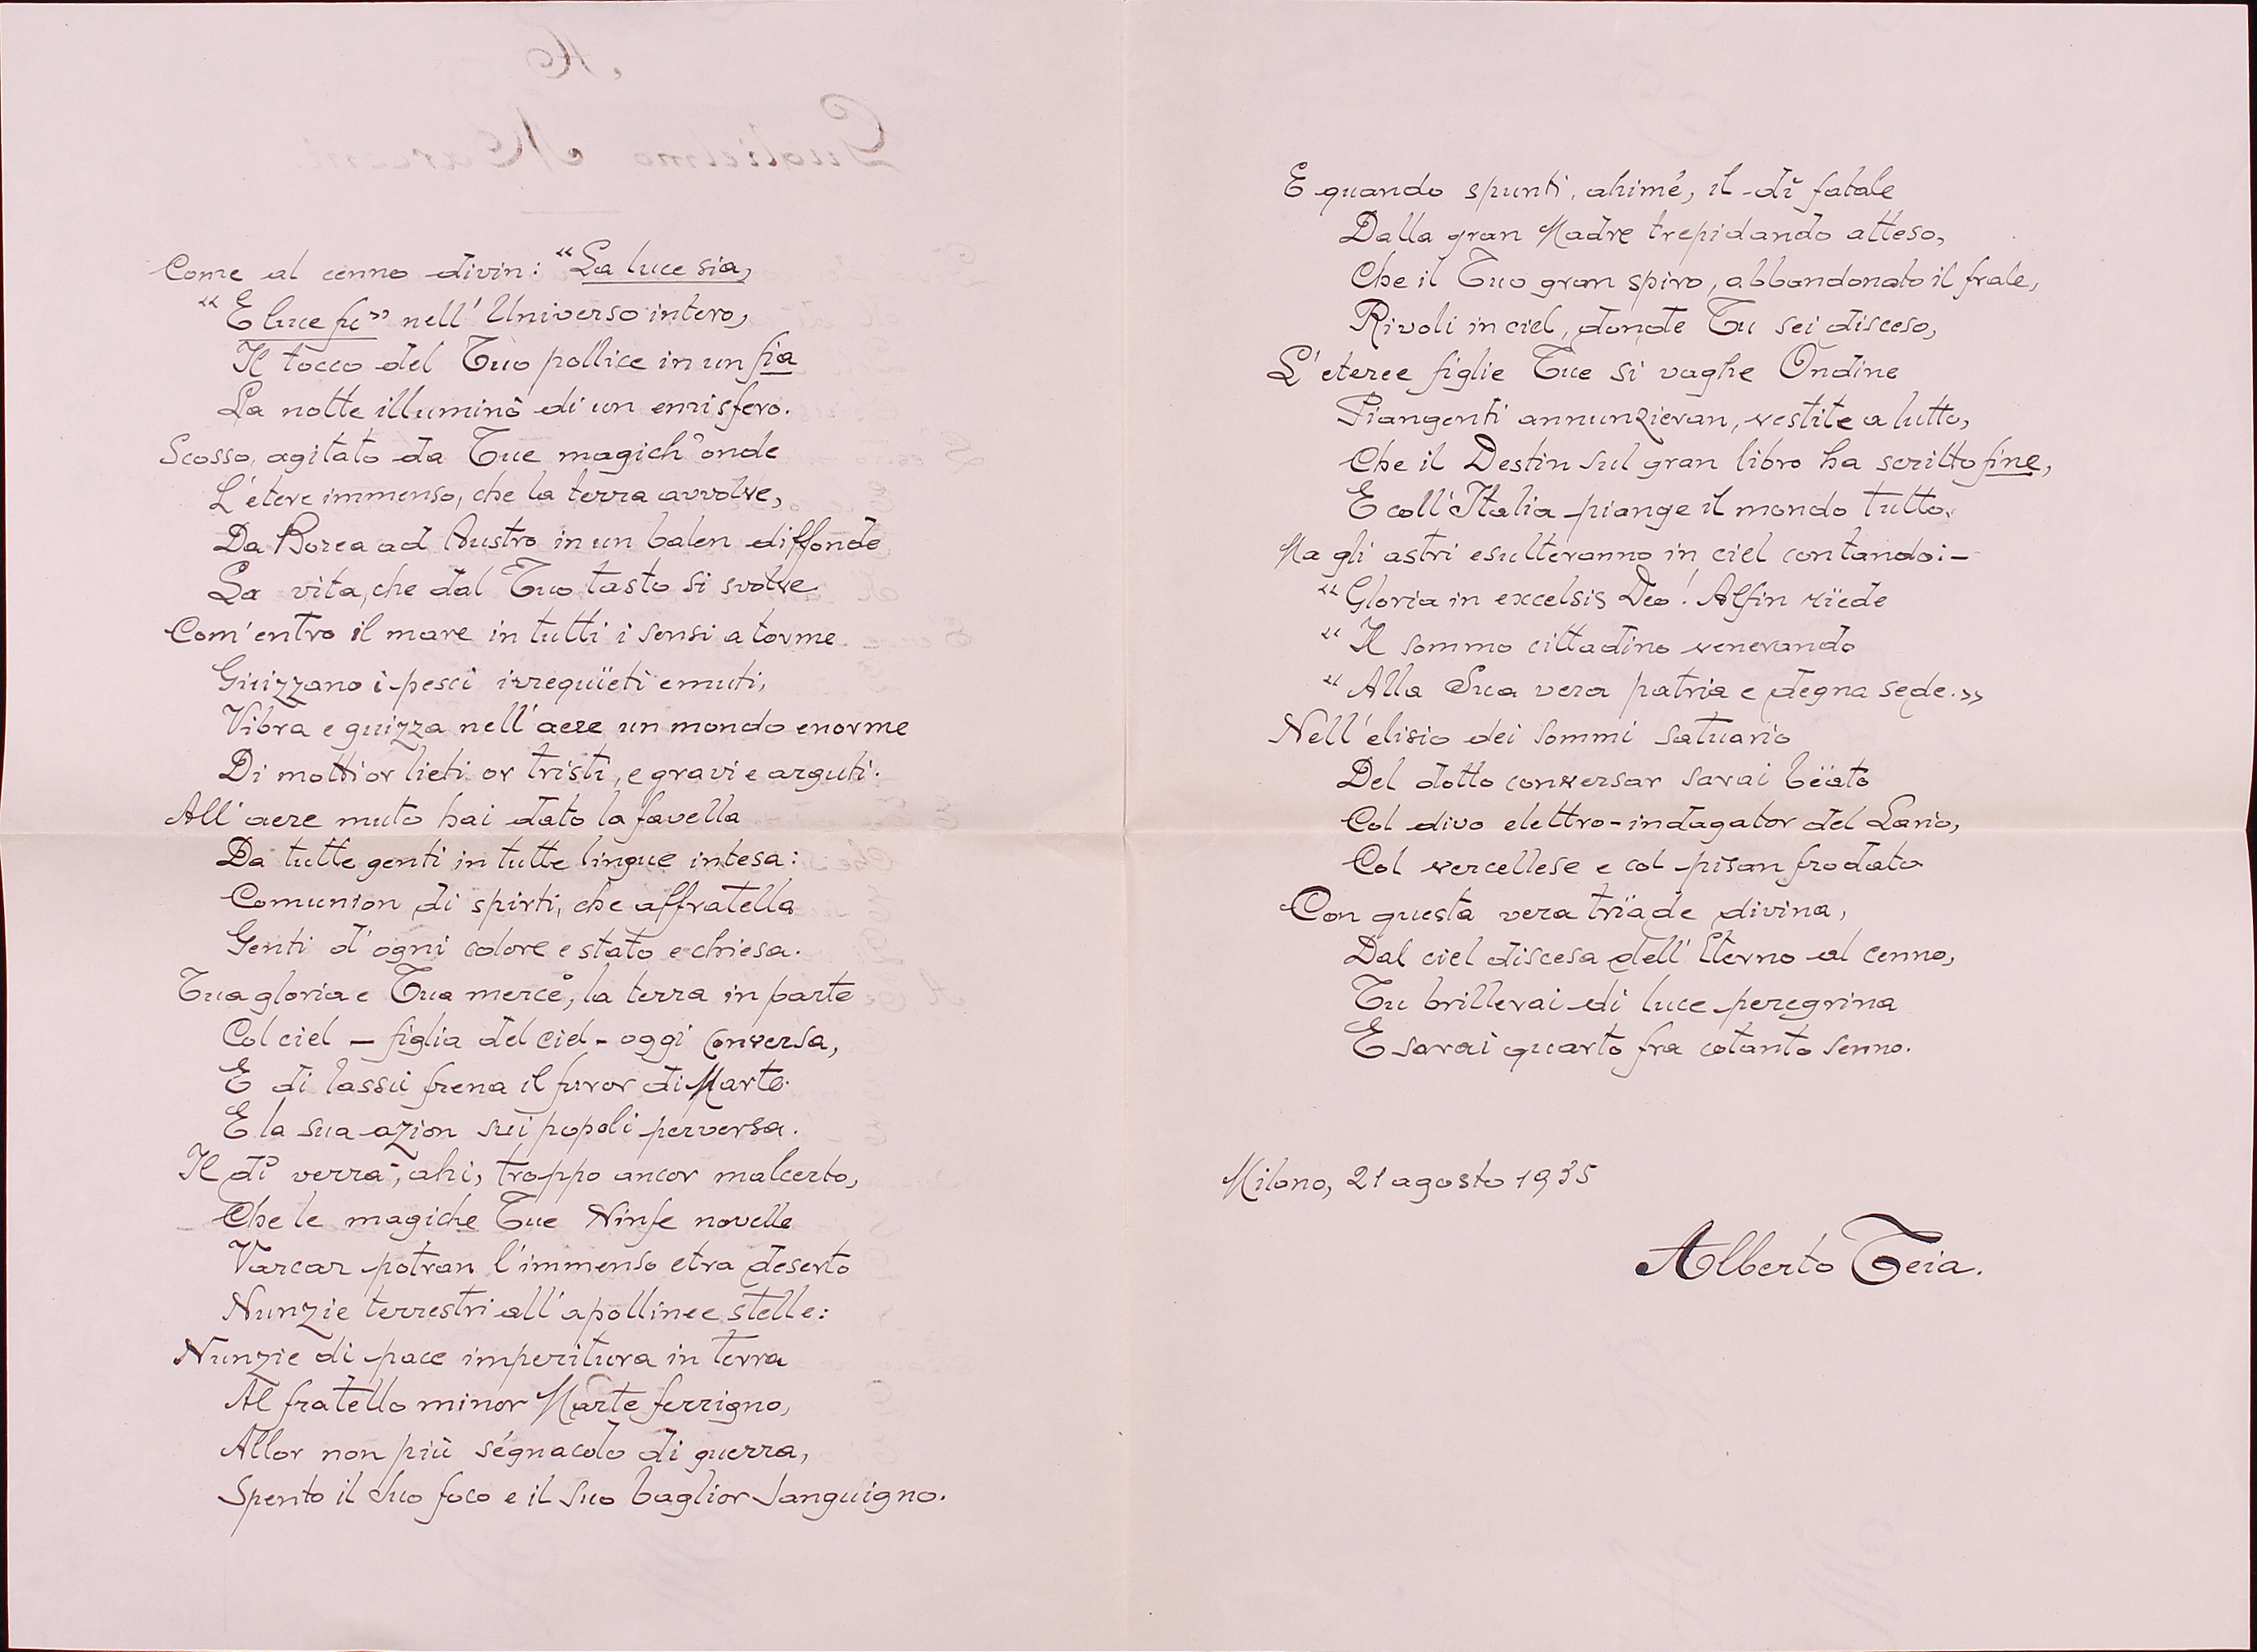 Come al cenno divin: "La luce sia,
"E luce fu" nell'Universo intero,
Il tocco del Tuo pollice in un fia
La notte illuminò di un emisfero.
Scosso, agitato da Tue magich'onde
L'etere immenso, che la terra avvolve,
Da Borea ad Austro in un balen diffonde
La vita, che dal Tuo tasto si svolve
Com'entro il mare in tutti i sensi a torme
Guizzano i pesci irrequïeti e muti,
Vibra e guizza nell'aere un mondo enorme
Di motti or lieti or tristi, e gravi e arguti.
All'aere muto hai dato la favella
Da tutte genti in tutte lingue intesa:
Comunion di spirti, che affratella
Genti d'ogni colore e stato e chiesa.
Tua gloria e Tua mercè, la terra in parte
Col ciel – figlia del ciel – oggi conversa,
E di lassù frena il furor di Marte
E la sua azion sui popoli perversa.
Il dì verrà, ahi, troppo ancor malcerto,
Che le magiche Tue Ninfe novelle
Varcar potran l'immenso etra deserto
Nunzie terrestri all'apollinee stelle:
Nunzie di pace imperitura in terra
Al fratello minor Marte ferrigno,
Allor non più segnacolo di guerra,
Spento il Suo foco e il Suo baglior sanguigno.
E quando spunti, ahimé, il dì fatale
Dalla gran Madre trepidando atteso,
Che il Tuo gran spiro, abbandonato il frale,
Rivoli in ciel, donde Tu sei disceso,
L'eteree figlie Tue si vaghe Ondine
Piangenti annunzieran, vestite a lutto,
Che il Destin sul gran libro ha scritto fine,
E coll'Italia piange il mondo tutto.
Ma gli astri esulteranno in ciel contando:–
"Gloria in excelsis Deo! Alfin rïede
"Il sommo cittadino venerando
"Alla Sua vera patria e degna sede."
Nell'elisio dei sommi satuario
Del dotto conversar sarai bëato
Col divo elettro-indagator del Lario,
Col vercellese e col pisan frodato
Con questa vera trïade divina,
Dal ciel discesa dell'Eterno al cenno,
Tu brillerai di luce peregrina
E sarai quarto fra cotanto senno.
Milano, 21 agosto 1935
Alberto Teia.